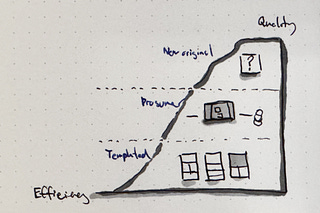 Quality
Non original
?
Prosumer
Templated
Efficiency